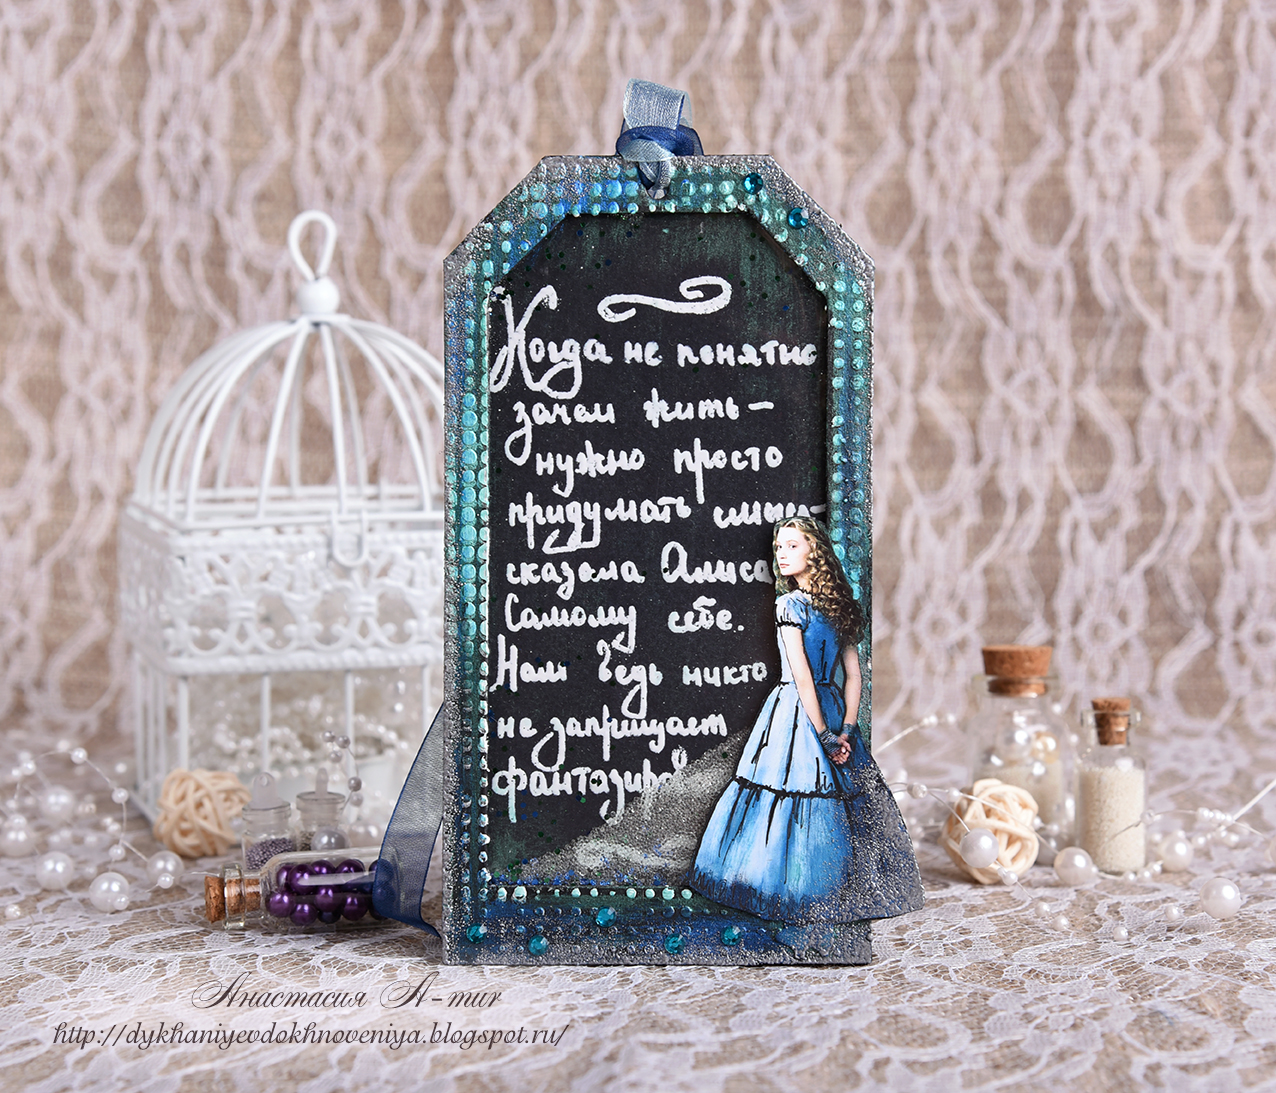 Когда не понятно
зачем жить –
нужно просто
придумать
сказала Алиса
Самому себе.
Нам ведь никто
не заприщает
Анастасия А-mur
http://dykhaniyevdokhnoveniya.blogspot.ru/